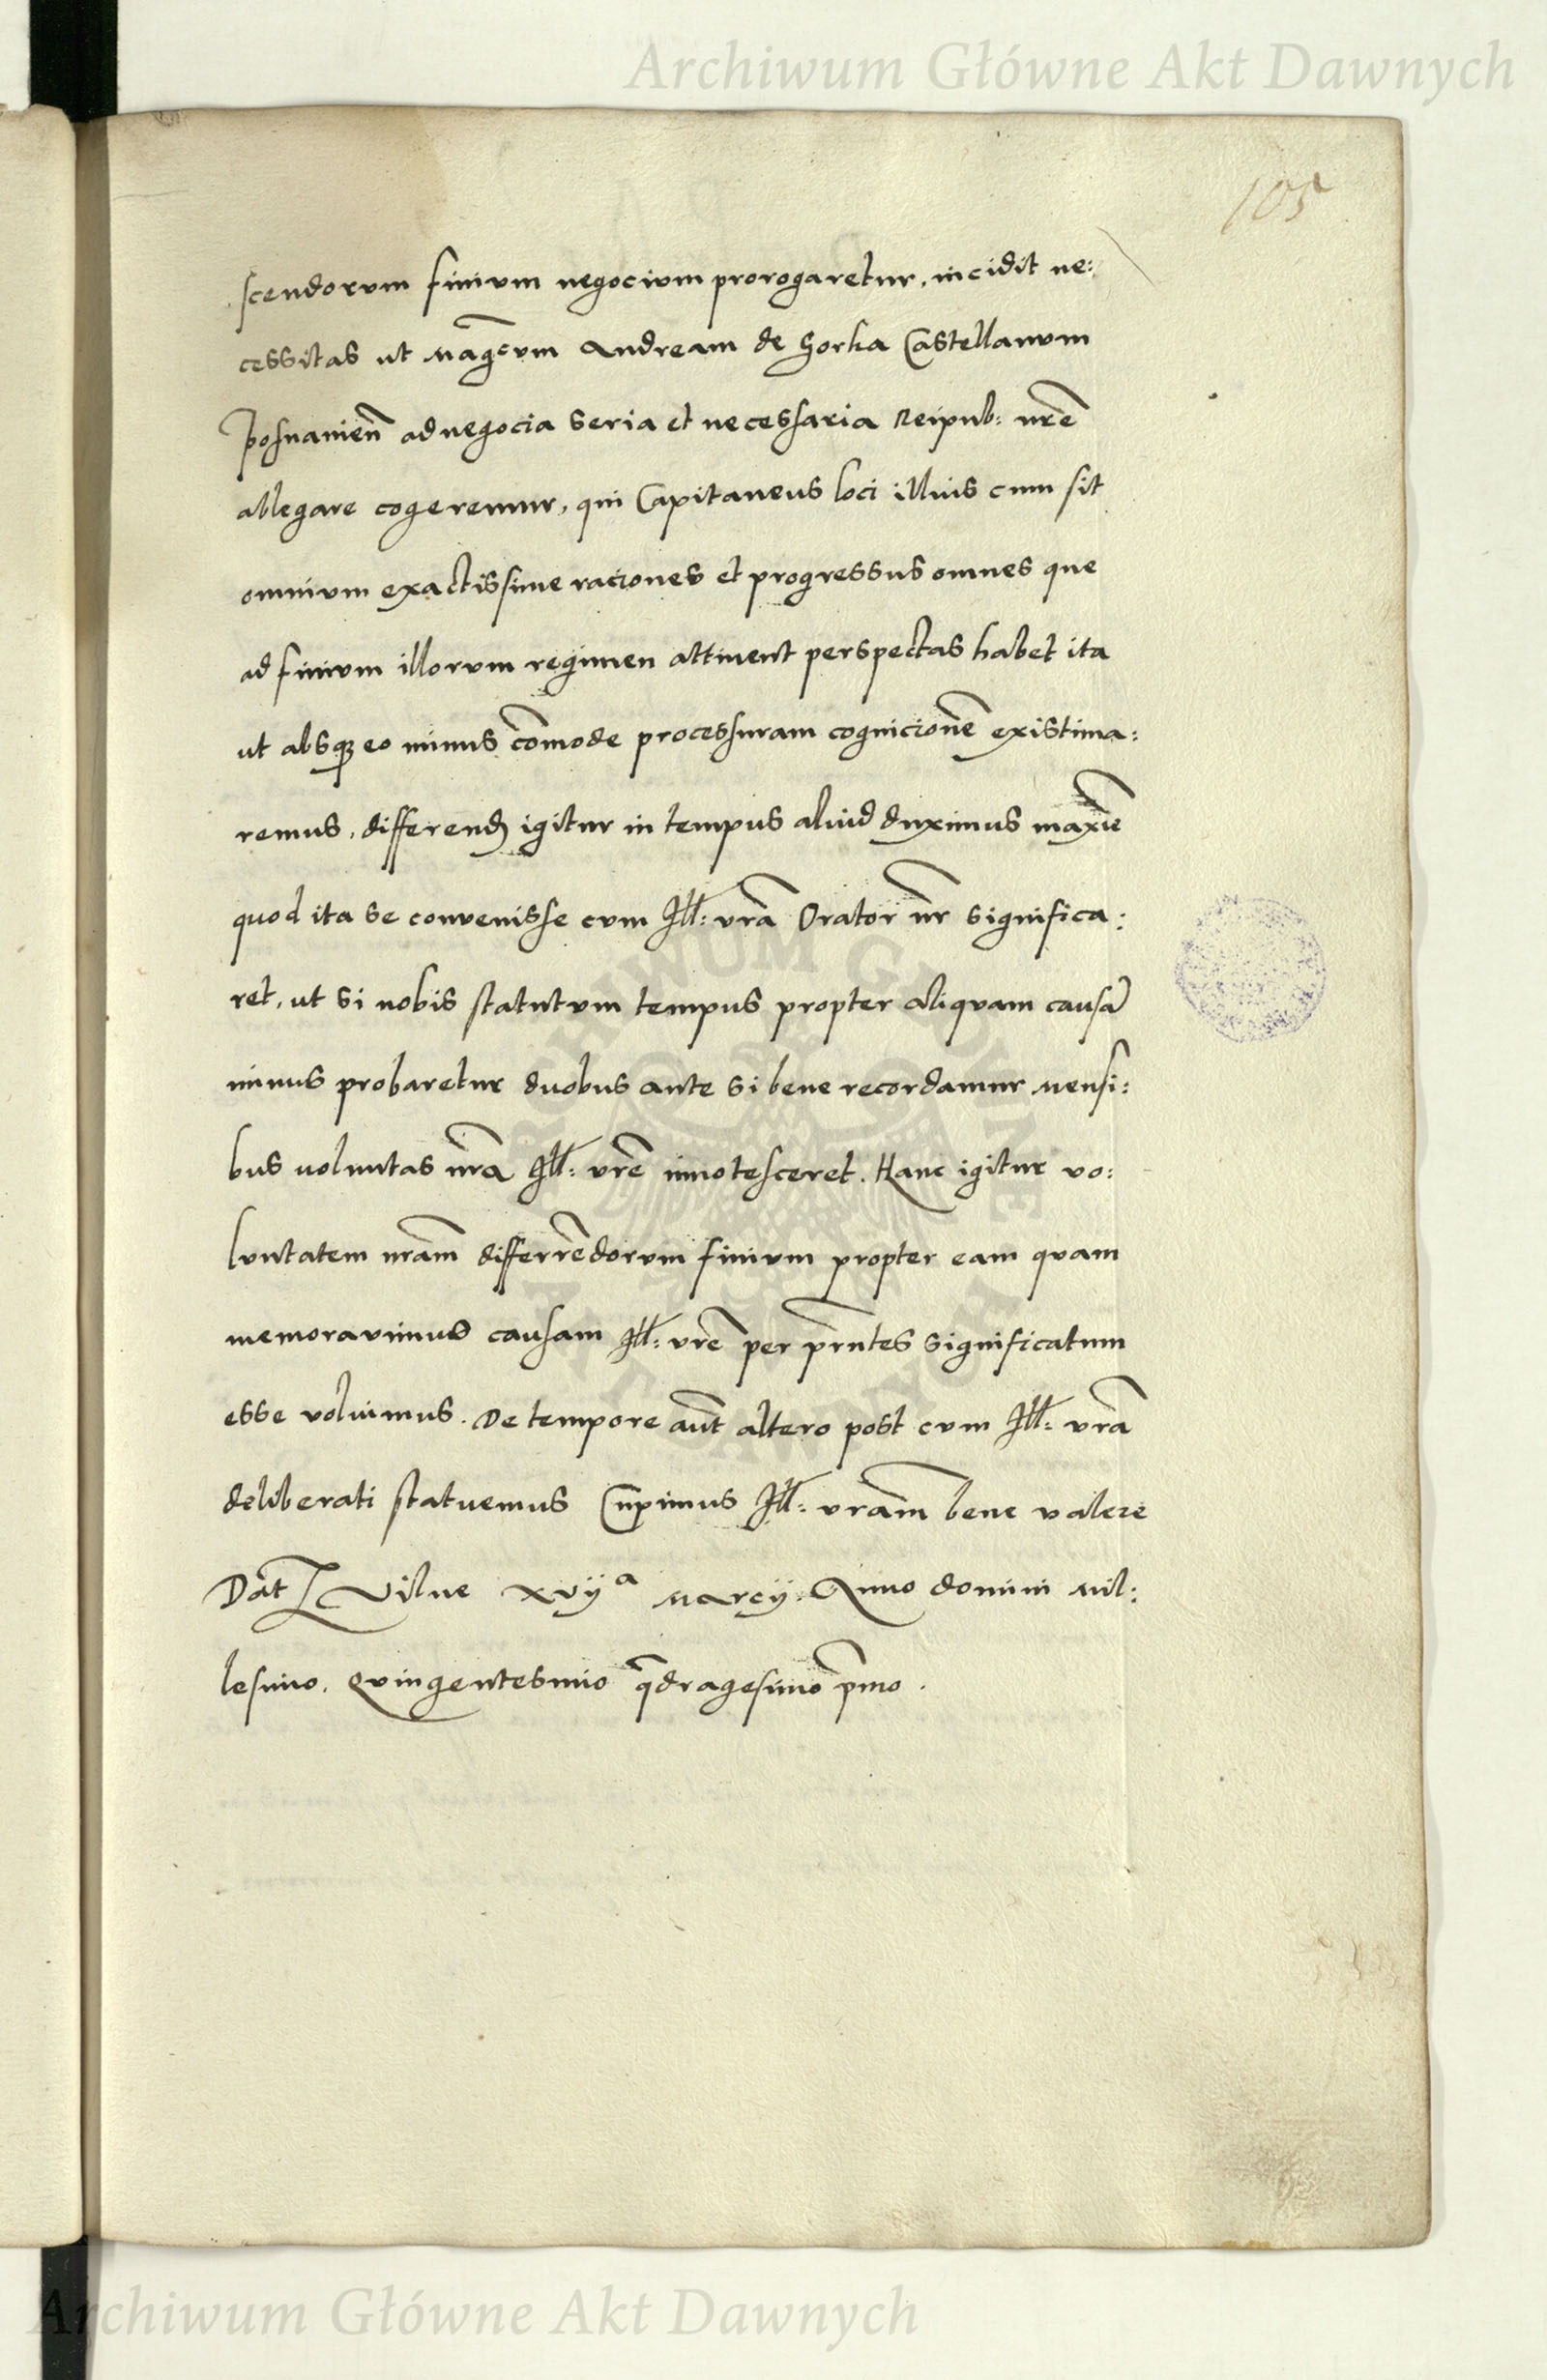 Archiwum Główne Akt Dawnych
105
scendorum finium negocium prorogaretur, incidit ne:
cessitas ut Mag̃cum Andream de Gorka Castellanum
Posnanien̄ ad negocia seria et necessaria Reipub: nr̄e
ablegare cogeremur, qui Capitaneus loci illius cum sit
omnium exactissime raciones et progressus omnes que
ad finium illorum regimen attinent perspectas habet ita
ut absqꝫ eo minus com̄ode processuram cognicionē existima:
remus, differend̄ igitur in tempus aliud duximus maxīe
quod ita se convenisse cum Ill: vr̄a Orator nr̄ significa:
ret, ut si nobis statutum tempus propter aliquam causā
minus probaretur duobus ante si bene recordamur mensi:
bus voluntas nr̄a Ill: vr̄e innotesceret. Hanc igitur vo:
luntatem nr̄am differrēdorum finium propter eam quam
memoravimus causam Ill: vr̄e per pr̄ntes significatum
esse voluimus. De tempore aut̄ altero post cum Ill: vr̄a
deliberati statuemus Cupimus Ill: vr̄am bene valere
Dat̄ Vilne xvijª Marcij. Anno domini Mil:
lesimo. Quingentesimo q̄dragesimo pr̄mo.
Archiwum Główne Akt Dawnych